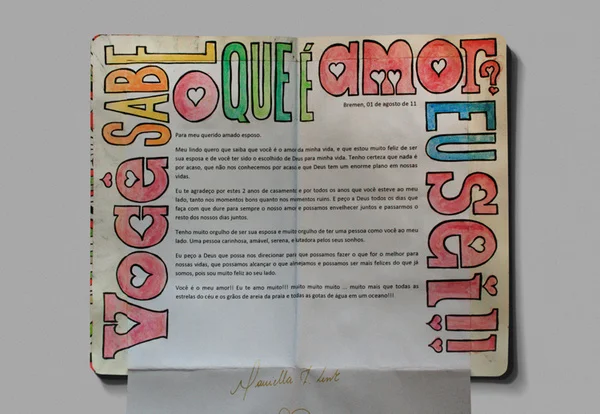 Você SABE O QUE É amor? EU Sei!!
Bremen, 01 de agosto de 11
Para meu querido amado esposo.
Meu lindo quero que saiba que você é o amor da minha vida, e que estou muito feliz de ser
sua esposa e de você ter sido o escolhido de Deus para minha vida. Tenho certeza que nada é
por acaso, que não nos conhecemos por acaso e que Deus tem um enorme plano em nossas
vidas.
Eu te agradeço por estes 2 anos de casamento e por todos os anos que você esteve ao meu
lado, tanto nos momentos bons quanto nos momentos ruins. E peço a Deus todos os dias que
faça com que dure para sempre o nosso amor e possamos envelhecer juntos e passarmos o
resto dos nossos dias juntos.
Tenho muito orgulho de ser sua esposa e muito orgulho de ter uma pessoa como você ao meu
lado. Uma pessoa carinhosa, amável, serena, e lutadora pelos seus sonhos.
Eu peço a Deus que possa nos direcionar para que possamos fazer o que for o melhor para
nossas vidas, que possamos alcançar o que almejamos e possamos ser mais felizes do que já
somos, pois sou muito feliz ao seu lado.
Você é o meu amor!! Eu te amo muito!!! muito muito muito ... muito mais que todas as
estrelas do céu e os grãos de areia da praia e todas as gotas de água em um oceano!!!.